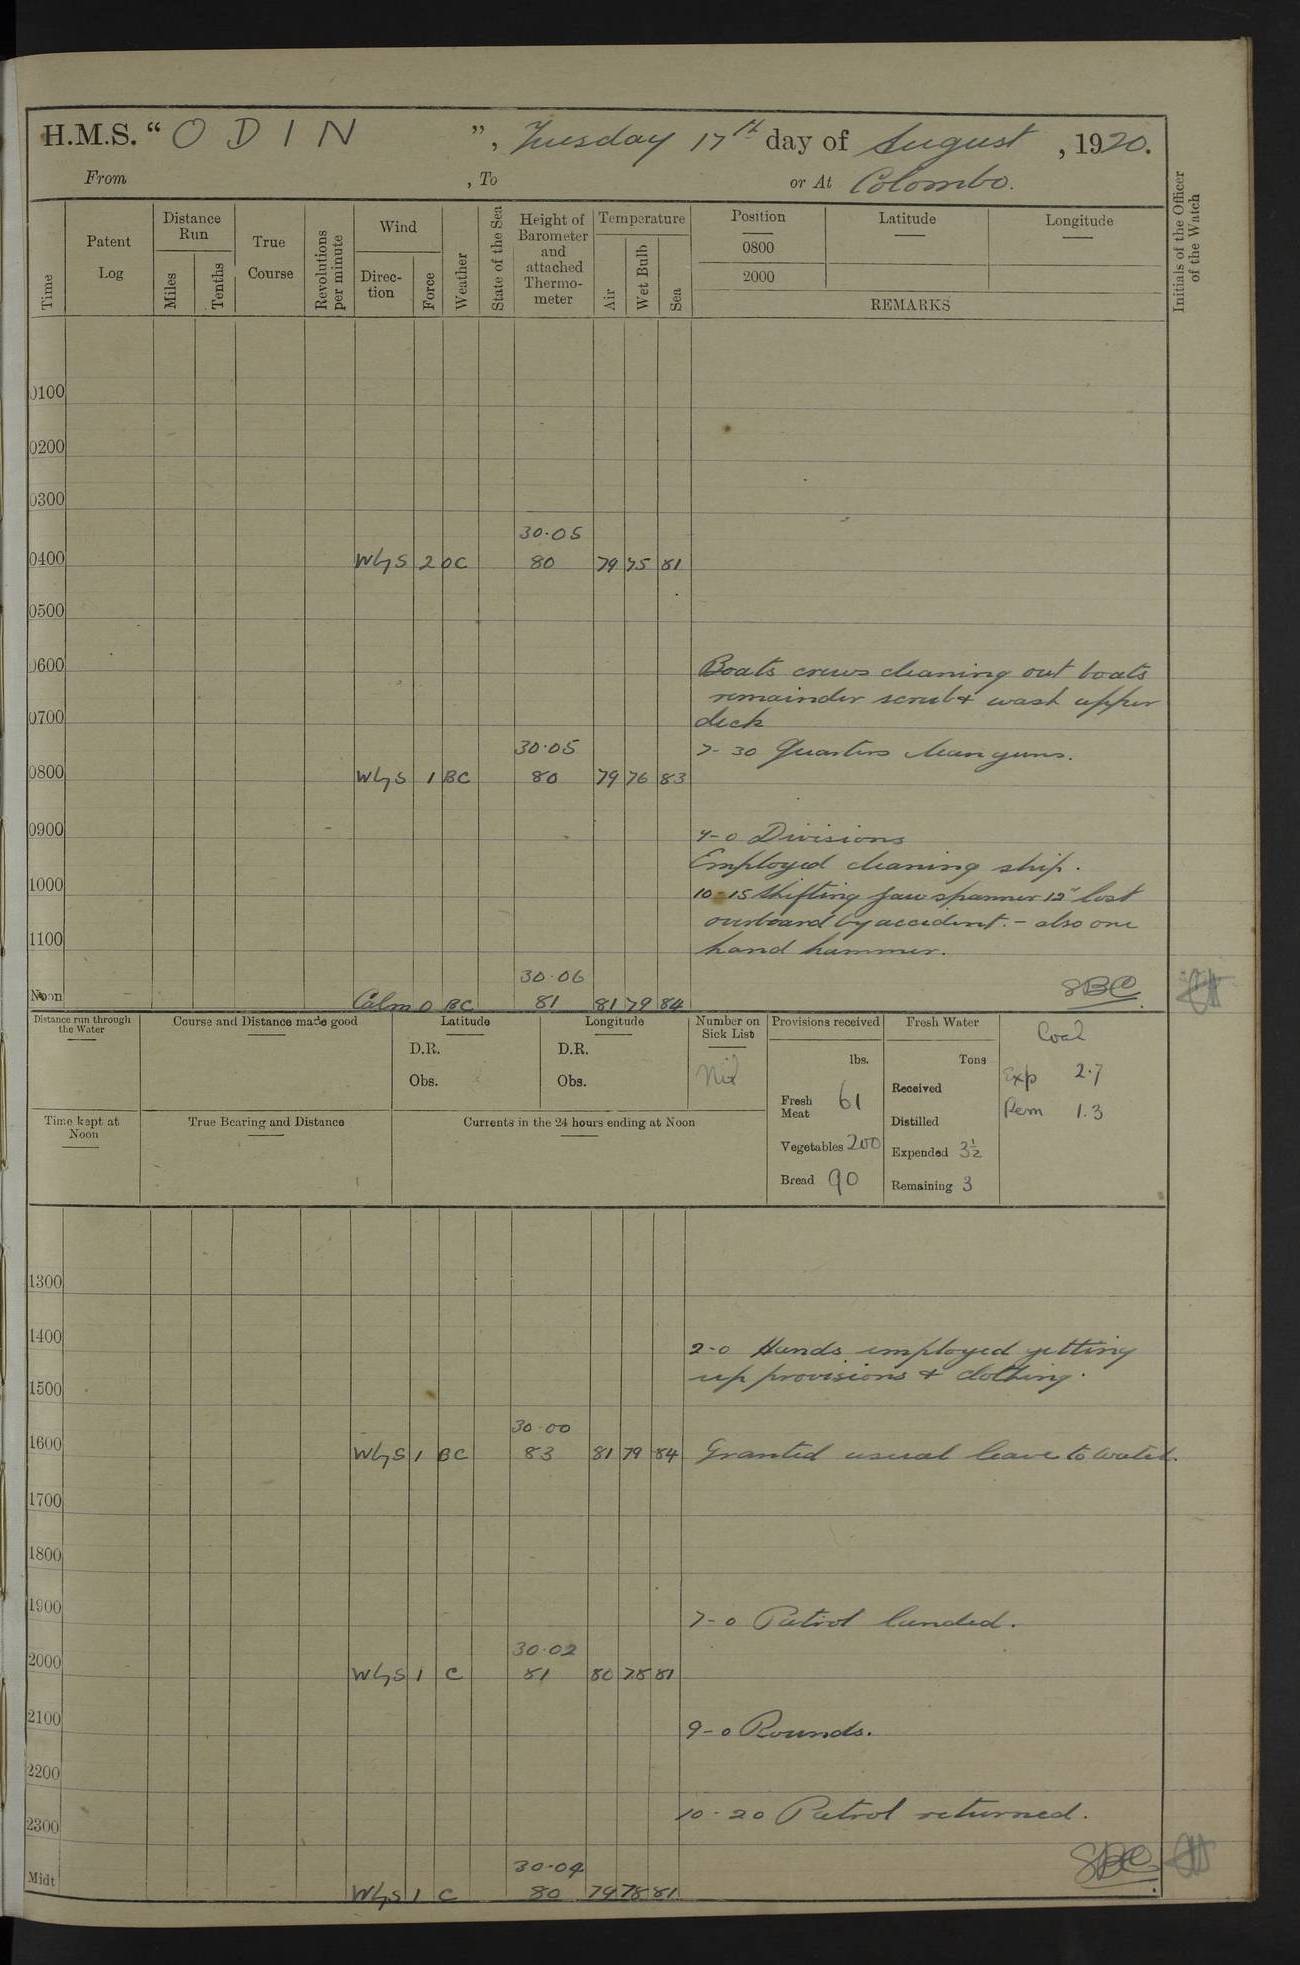 H.M.S. “ O D I N ”, Tuesday 17th day of August, 1920.
From , To or At Colombo.
Time Patent Log Distance Run Miles Tenths True Course Revolutions per minute Wind Direc-tion Force Weather State of the Sea Height of Barometer and attached Thermo-meter Temperature Air Wet Bulb Sea Position Latitude Longitude Initials of the Officer of the Watch
0800
2000
REMARKS
0100
0200
0300
30·05
0400 WbyS 2 OC 80 79 75 81
0500
0600 Boats crews cleaning out boats
remainder scrub & wash upper
0700 deck
30·05 7-30 Quarters clean guns.
0800 WbyS 1 BC 80 79 76 83
0900 9-0 Divisions
Employed cleaning ship.
1000 10-15 Shifting jaw spanner 12" lost
overboard by accident. - also one
1100 hand hammer.
30·06
Noon Calm 0 BC 81 81 79 84 SBC
Distance run through the Water Course and Distance made good Latitude Longitude Number on Sick List Provisions received Fresh Water Coal
D.R. D.R. lbs. Tons
Obs. Obs. Nil Received Exp 2.7
Fresh Meat 61 Rem 1.3
Time kept at Noon True Bearing and Distance Currents in the 24 hours ending at Noon Distilled
Vegetables 200 Expended 3½
Bread 90 Remaining 3
1300
1400 2-0 Hands employed getting
up provisions & clothing.
1500
30·00
1600 WbyS 1 BC 83 81 79 84 Granted usual leave to watch.
1700
1800
1900 7-0 Patrol landed.
30·02
2000 WbyS 1 C 81 80 78 81
2100 9-0 Rounds.
2200
10-20 Patrol returned.
2300
30·04
Midt WbyS 1 C 80 79 78 81 SBC